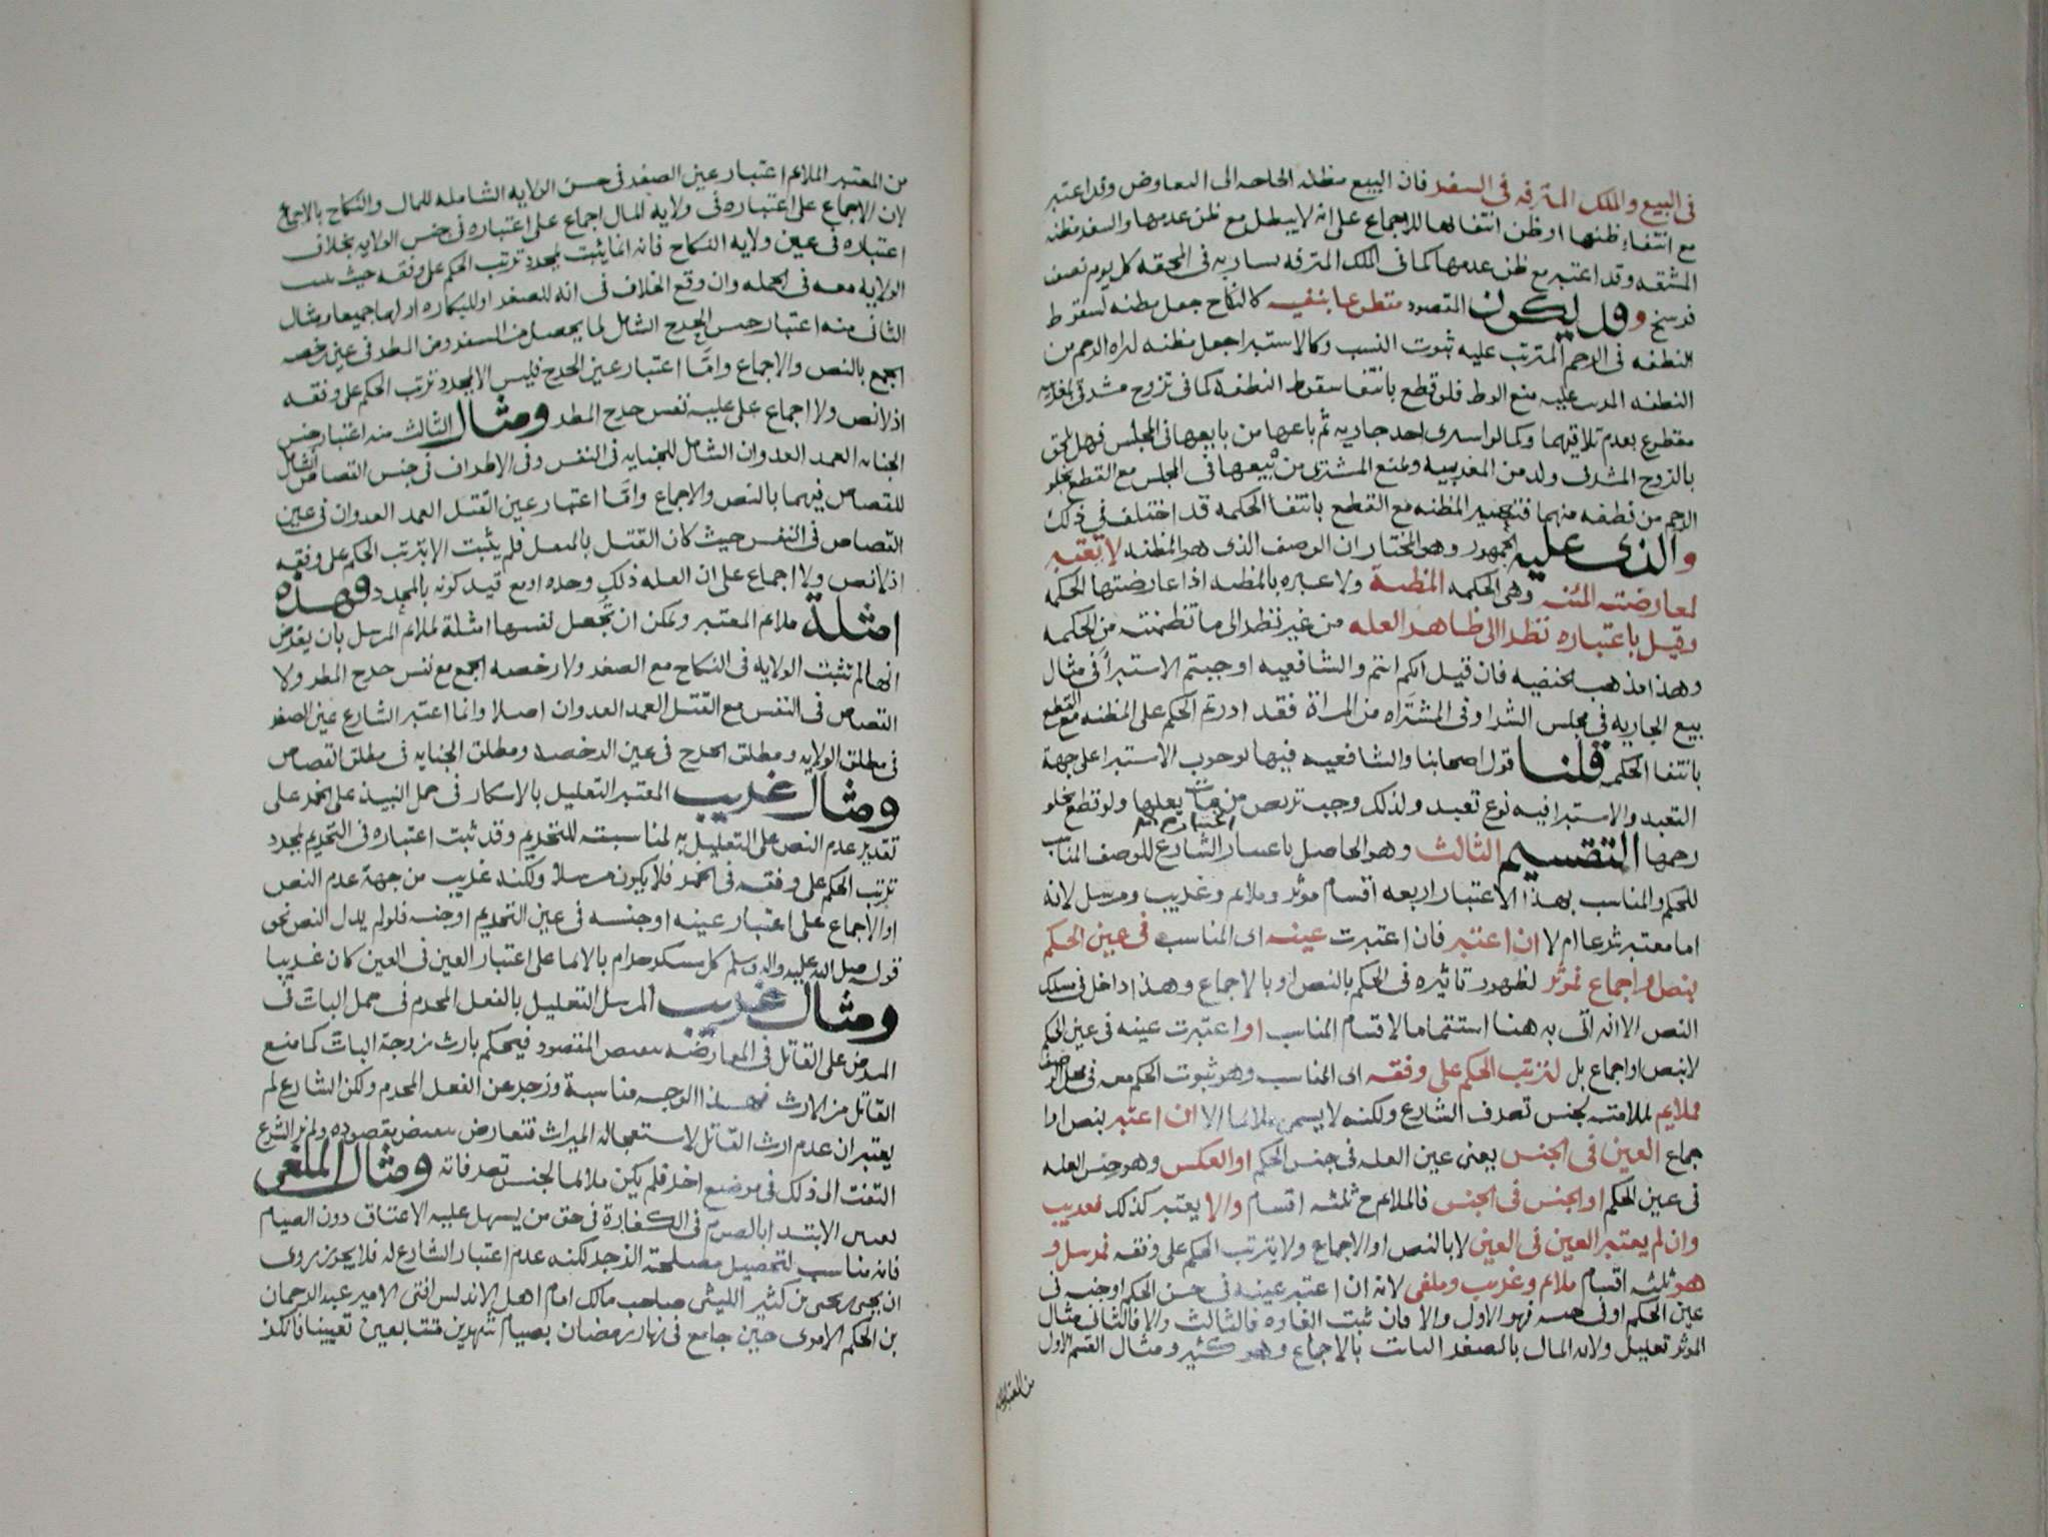 فى البيع والملك المترفه فى السفر فان البيع مظنه الحاجه الى التعاوض وقد اعتبر
مع انتفاء ظنها او ظن انتفائها للاجماع على انه لا يبطل مع ظن عدمها والسفر مظنه
المشقه وقد اعتبر مع ظن عدمها كما فى الملك المترفه يسار به فى المحفه كل يوم نصف
فرسخ وقد يكون المقصود منتطوعا بنفيه كالنكاح جعل مظنه لسقوط
النطفه فى الرحم المترتب عليه ثبوت النسب وكالاستبرا جعل مظنه لبراه الرحم من
النطفه المرتب عليه منع الوطء فلو قطع بانتفا سقوط النطفه كما فى تزوج مشرقى لمغربيه
مقطوع بعدم تلاقيهما وكما لو اشترى احد جاريه ثم باعها من بايعها فى المجلس فهل يلحق
بالزوج المشرقى ولد من المغربيه ويمنع المشترى من بيعها فى المجلس مع القطع بخلو
الرحم من نطفه منهما فتعتبر المظنه مع القطع بانتفا الحكمه قد اختلف فى ذلك
والذى عليه الجمهور وهو المختار ان الوصف الذى هو المظنه لا تعتبر
لمعارضته المئنه وهى الحكمه المظنة ولا عبره بالمظنه اذا عارضتها الحكمه
وقيل باعتباره نظرا الى ظاهر العله من غير نظر الى ما تظمنته من الحكمه
وهذا مذهب الحنفيه فان قيل انكم انتم والشافعيه اوجبتم الاستبرأ فى مثال
بيع الجاريه فى مجلس الشرا وفى المشتراه من المراة فقد ادرتم الحكم على المظنه مع القطع
بانتفا الحكمه قلنا قول اصحابنا والشافعيه فيها لوجوب الاستبرا على جهة
التعبد والاستبرا فيه نوع تعبد ولذلك وجب تربص من مات بعلها ولو قطع بخلو
رحمها التقسيم الثالث وهو الحاصل باعتبار الشارع للوصف المناسب
للحكم والمناسب بهذا الاعتبار اربعه اقسام موثر وملايم وغريب ومرسل لانه
اما معتبر شرعا ام لا ان اعتبر فان اعتبرت عينه اى المناسب فى عين الحكم
بنص او اجماع فموثر لظهور تاثيره فى الحكم بالنص او بالاجماع وهذا داخل فى مسلك
النص الا انه اتى به هنا استتماما لاقسام المناسب او اعتبرت عينه فى عين الحكم
لا بنص او اجماع بل لترتب الحكم على وفقه اى المناسب وهو ثبوت الحكم معه فى محل الوصف
فملايم لملامته لجنس تصرف الشارع ولكنه لا يسمى ملايما الا ان اعتبر بنص او ا
جماع العين فى الجنس يعنى عين العله فى جنس الحكم او العكس وهو جنس العله
فى عين الحكم او الجنس فى الجنس فالملايم ح ثلثه اقسام والا يعتبر كذلك فغريب
وان لم يعتبر العين فى العين لا بالنص او الاجماع ولا بترتب الحكم على وفقه فمرسل و
هو ثلثه اقسام ملايم وغريب وملغى لانه ان اعتبر عينه فى جنس الحكم او جنسه فى
عين الحكم او فى جنسه فهو الاول والا فان ثبت الغاوه فالثالث والا فالثانى مثال
الموثر تعليل ولايه المال بالصغر الثابت بالاجماع وهو كثير ومثال القسم الاول
من المعتبر الملايم
من المعتبر الملايم اعتبار عين الصغر فى جنس الولايه الشامله للمال والنكاح بالاجماع
لان الاجماع على اعتباره فى ولايه المال اجماع على اعتباره فى جنس الولايه بخلاف
اعتباره فى عين ولايه النكاح فانه انما يثبت لمجرد ترتب الحكم على وفقه حيث ثبت
الولاية معه فى الجمله وان وقع الخلاف فى انه للصغر او للبكاره او لهما جميعا ومثال
الثانى منه اعتبار جنس الحرج الشامل لما يحصل من السفر ومن المطر فى عين رخصه
الجمع بالنص والاجماع وامَّا اعتبار عين الحرج فليس الا لمجرد ترتب الحكم على وفقه
اذ لا نص ولا اجماع على عليه نفس حرج المطر ومثال الثالث منه اعتبار جنس
الجنايه العمد العدوان الشامل للجنايه فى النفس وفى الاطراف فى جنس القصاص الشامل
للقصاص فيهما بالنص والاجماع وامَّا اعتبار عين القتل العمد العدوان فى عين
القصاص فى النفس حيث كان القتل بالمثقل فلم يثبت الا بترتب الحكم على وفقه
اذ لا نص ولا اجماع على ان العله ذلك وحده او مع قيد كونه بالمحدد وهذه
امثلة ملايم المعتبر ويمكن ان تجعل نفسها امثلة لملايم المرسل بان يفرض
انها لم تثبت الولايه فى النكاح مع الصغر ولا رخصه الجمع مع نفس حرج المطر ولا
القصاص فى النفس مع القتل العمد العدوان اصلا وانما اعتبر الشارع عين الصغر
فى مطلق الولايه ومطلق الحرج فى عين الرخصه ومطلق الجنايه فى مطلق القصاص
ومثال غريب المعتبر التعليل بالاسكار فى حمل النبيذ على الخمر على
تقدير عدم النص على التعليل به لمناسبته للتحريم وقد ثبت اعتباره فى التحريم لمجرد
ترتب الحكم على وفقه فى الخمر فلا يكون مرسلا ولكنه غريب من جهة عدم النص
او الاجماع على اعتبار عينه او جنسه فى عين التحريم او جنسه فلو لم يدل النص نحو
قوله صلى الله عليه واله وسلم كل مسكر حرام بالايما على اعتبار العين فى العين كان غريبا
ومثال غريب المرسل التعليل بالفعل المحرم فى حمل البات فى
المرض على القاتل فى المعارضه بنقيض المقصود فيحكم بارث زوجة البات كما منع
القاتل من الارث فهذا الوجه مناسبة وزجر عن الفعل المحرم ولكن الشارع لم
يعتبر ان عدم ارث القاتل لاستعجاله الميراث فتعارض بنقيض مقصوده ولم نر الشرع
التفت الى ذلك فى موضع اخر فلم يكن ملايما لجنس تصرفاته ومثال الملغى
تعيين الابتدا بالصوم فى الكفارة فى حق من يسهل عليه الاعتاق دون الصيام
فانه مناسب لتحصيل مصلحة الزجر لكنه عدم اعتبار الشارع له فلا يجوز روى
ان يحيى بن يحيى بن كثير الليثى صاحب مالك امام اهل الاندلس افتى الامير عبد الرحمان
بن الحكم الاموى حين جامع فى نهار رمضان بصيام شهرين متتابعين تعيينا فانكر